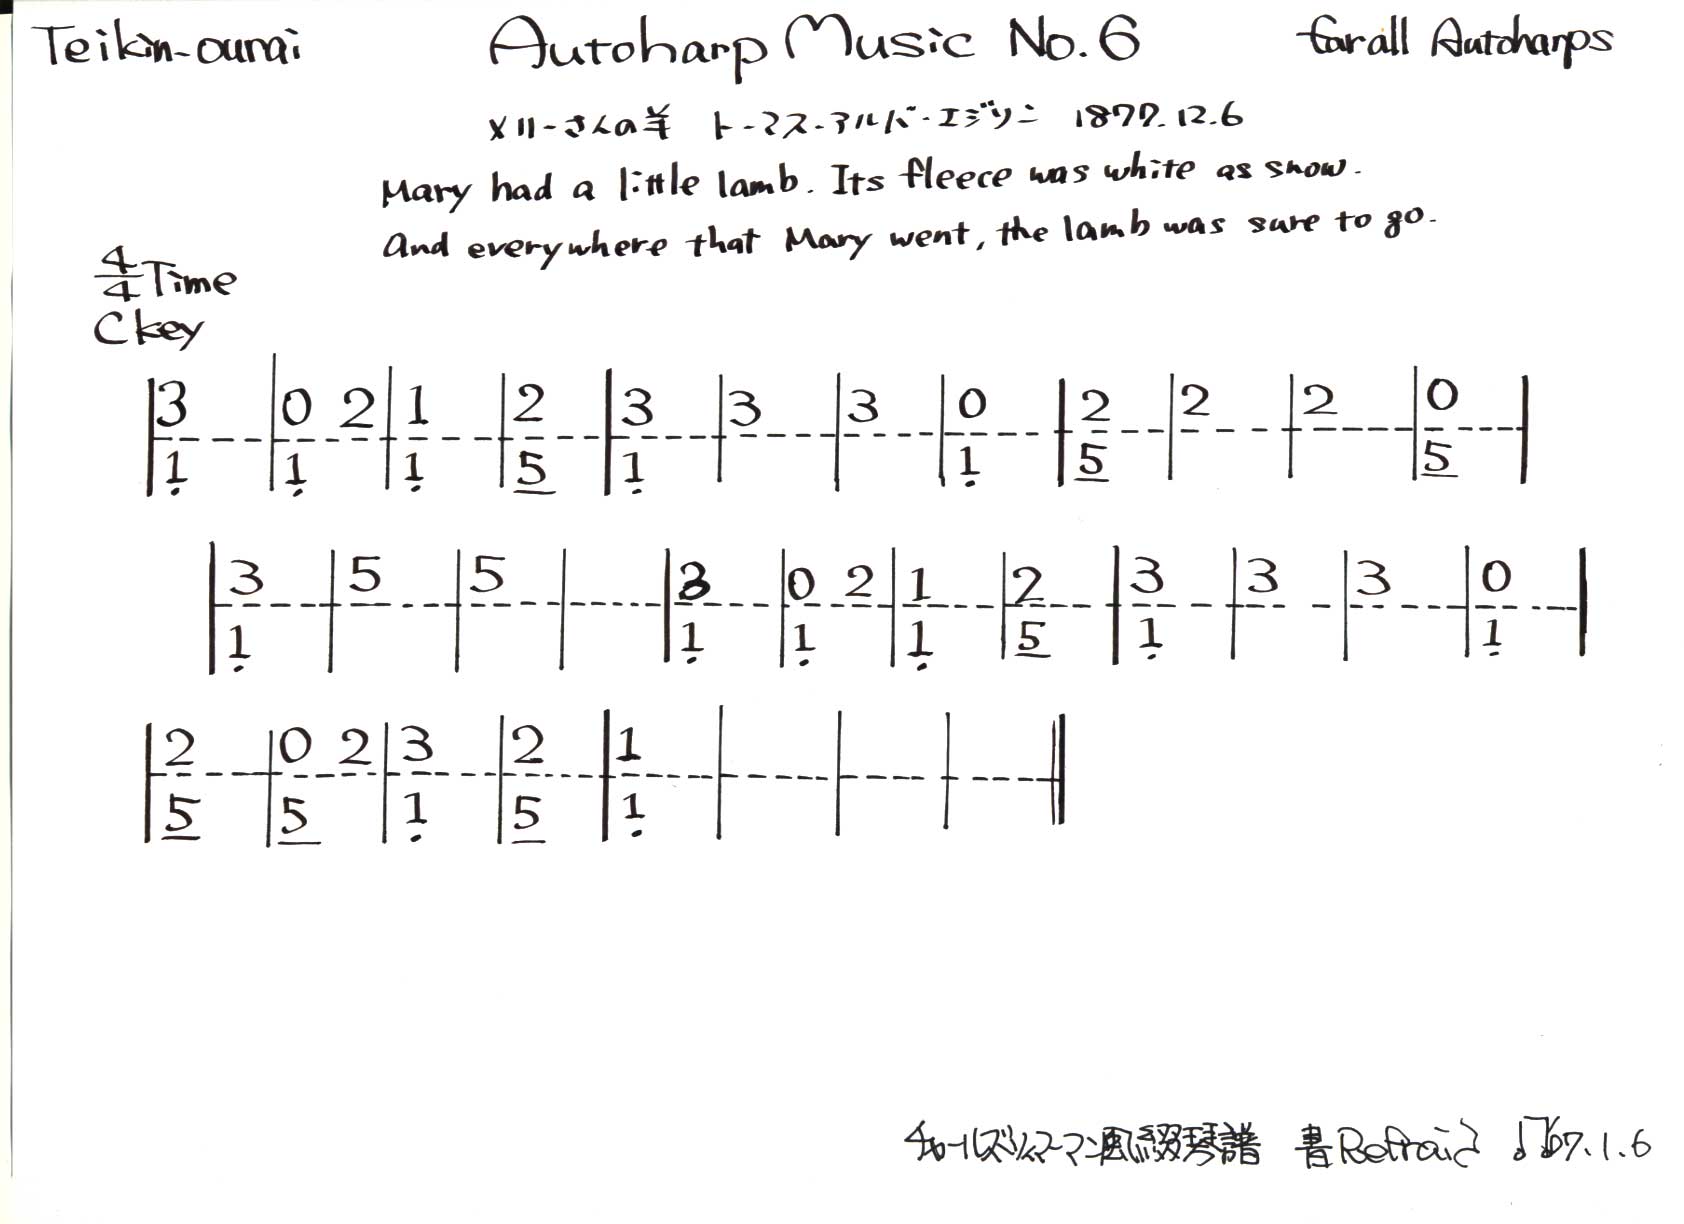 Teikin-ourai Autoharp Music No.6 for all Autoharps
メリーさんの羊 トーマス・アルバ・エジソン 1877.12.6
Mary had a little lamb. Its fleece was white as snow.
And everywhere that Mary went, the lamb was sure to go.
4/4 Time
C key
3 0 2 1 2 3 3 3 0 2 2 2 0
1 1 1 5 1 1 5 5
3 5 5 3 0 2 1 2 3 3 3 0
1 1 1 1 5 1 1
2 0 2 3 2 1
5 5 1 5 1
チャールズツィマーマン風綴琴譜 書 '07.1.6